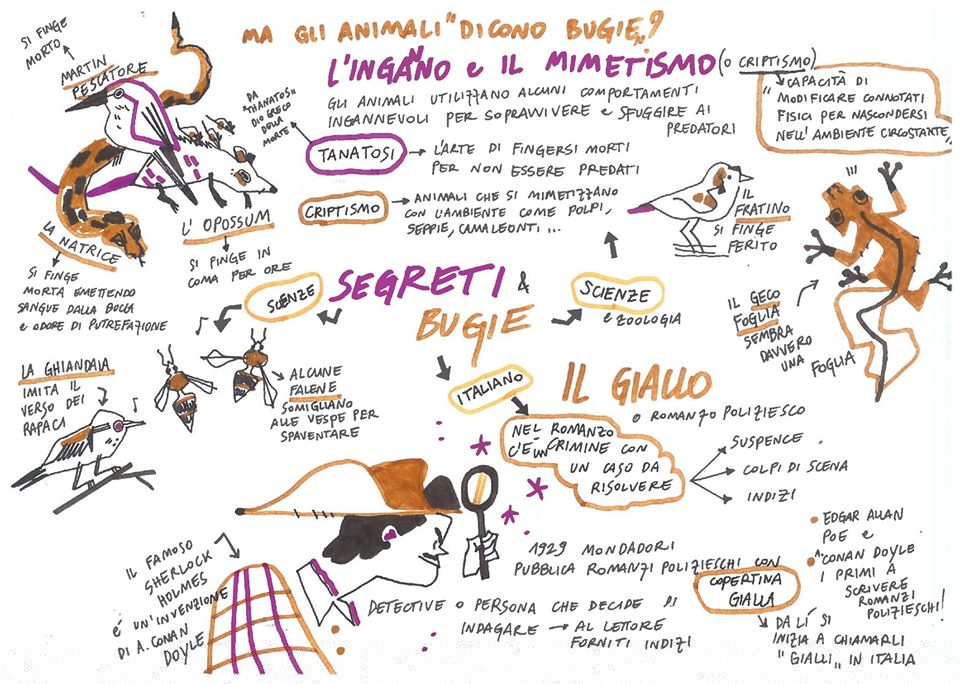 MA GLI ANIMALI "DICONO BUGIE"?
L'INGANNO e IL MIMETISMO (O CRIPTISMO)
" CAPACITÀ DI
MODIFICARE CONNOTATI
FISICI PER NASCONDERSI
NELL'AMBIENTE CIRCOSTANTE "
GLI ANIMALI UTILIZZANO ALCUNI COMPORTAMENTI
INGANNEVOLI PER SOPRAVVIVERE e SFUGGIRE AI
PREDATORI
SI FINGE
MORTO
MARTIN
PESCATORE
DA
"THANATOS"
DIO GRECO
DELLA
MORTE
TANATOSI
L'ARTE DI FINGERSI MORTI
PER NON ESSERE PREDATI
CRIPTISMO
ANIMALI CHE SI MIMETIZZANO
CON L'AMBIENTE COME POLPI,
SEPPIE, CAMALEONTI ...
IL
FRATINO
SI FINGE
FERITO
LA NATRICE
SI FINGE
MORTA EMETTENDO
SANGUE DALLA BOCCA
e ODORE DI PUTREFAZIONE
L'OPOSSUM
SI FINGE IN
COMA PER ORE
SCIENZE
SEGRETI &
BUGIE
SCIENZE
e ZOOLOGIA
IL GECO
FOGLIA
SEMBRA
DAVVERO
UNA
FOGLIA
LA GHIANDAIA
IMITA IL
VERSO DEI
RAPACI
ALCUNE
FALENE
SOMIGLIANO
ALLE VESPE PER
SPAVENTARE
ITALIANO
IL GIALLO
O ROMANZO POLIZIESCO
NEL ROMANZO
C'È UN CRIMINE CON
UN CASO DA
RISOLVERE
SUSPENCE
COLPI DI SCENA
INDIZI
IL FAMOSO
SHERLOCK
HOLMES
É UN'INVENZIONE
DI A. CONAN
DOYLE
1929 MONDADORI
PUBBLICA ROMANZI POLIZIESCHI CON
COPERTINA
GIALLA
DA LÍ SI
INIZIA A CHIAMARLI
"GIALLI" IN ITALIA
DETECTIVE O PERSONA CHE DECIDE DI
INDAGARE → AL LETTORE
FORNITI INDIZI
EDGAR ALLAN
POE e
A. CONAN DOYLE
I PRIMI A
SCRIVERE
ROMANZI
POLIZIESCHI!